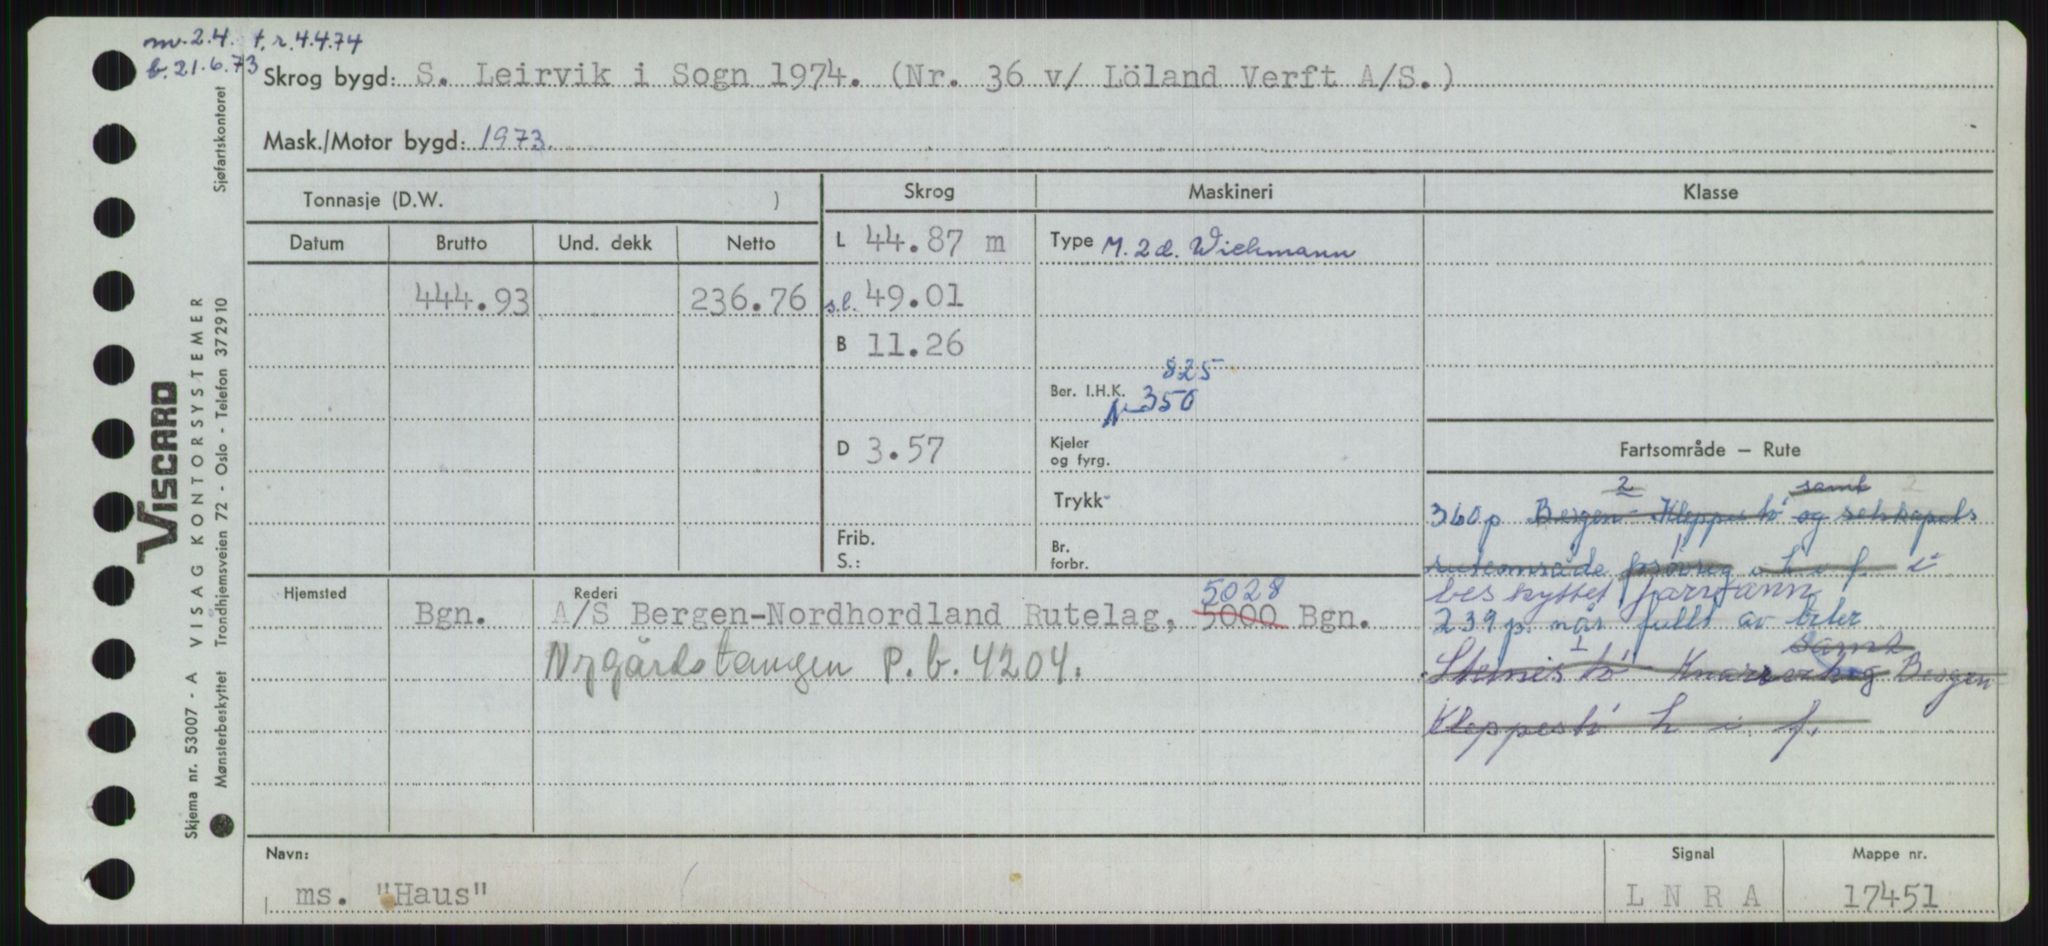 mv. 2.4. t.r. 4.4.74
b. 21.6.73
Skrog bygd: S. Leirvik i Sogn 1974. (Nr. 36 v/ Löland Verft A/S.)
Mask./Motor bygd: 1973.
Tonnasje (D.W. )
Skrog
Maskineri
Klasse
Datum Brutto Und. dekk Netto
L 44.87 m
Type M. 2 d. Wichmann
444.93 236.76
s.l. 49.01
B 11.26
825
Ber. I.H.K.
N 350
D 3.57
Kjeler
og fyrg.
Trykk
Frib.
S.:
Br.
forbr.
Fartsområde — Rute
2 samt 2
360 p Bergen - Kleppestö og selskapets
ruteområde h i f. i
beskyttet farvann
239 p. når fullt av biler
1 samt
Steinestö Knarrevik og Bergen
Kleppestö h i f.
Hjemsted
Bgn.
Rederi
5028
A/S Bergen-Nordhordland Rutelag, 5000 Bgn.
Nygårdstangen P.b. 4204.
Navn:
ms. "Haus"
Signal
L N R A
Mappe nr.
17451
Sjøfartskontoret
VISCARD
VISAG KONTORSYSTEMER
Trondhjemsveien 72 - Oslo - Telefon 372910
Skjema nr. 53007 - A
Mønsterbeskyttet